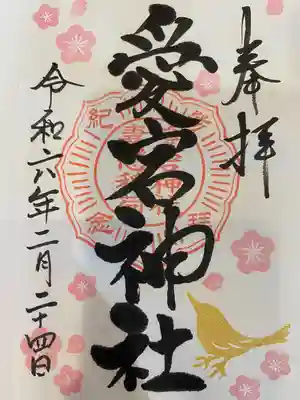 奉拝
愛宕神社
令和六年二月二十四日